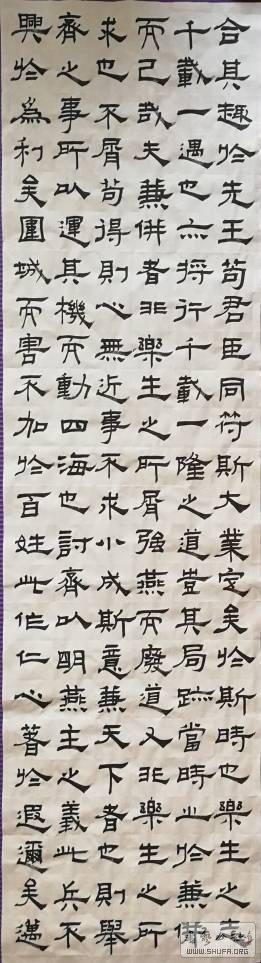 合其趣於先王苟君臣同符斯大業定矣於斯時也樂生之志
千載一遇也亦將行千載一隆之道豈其局跡當時止於兼併
而已哉夫兼併者非樂生之所屑強燕而廢道又非樂生之所
求也不屑苟得則心無近事不求小成斯意兼天下者也則舉
齊之事所以運其機而動四海也討齊以明燕主之義此兵不
興於為利矣圍城而害不加於百姓此作仁心著於遐邇矣邁
WWW.SHUFA.ORG